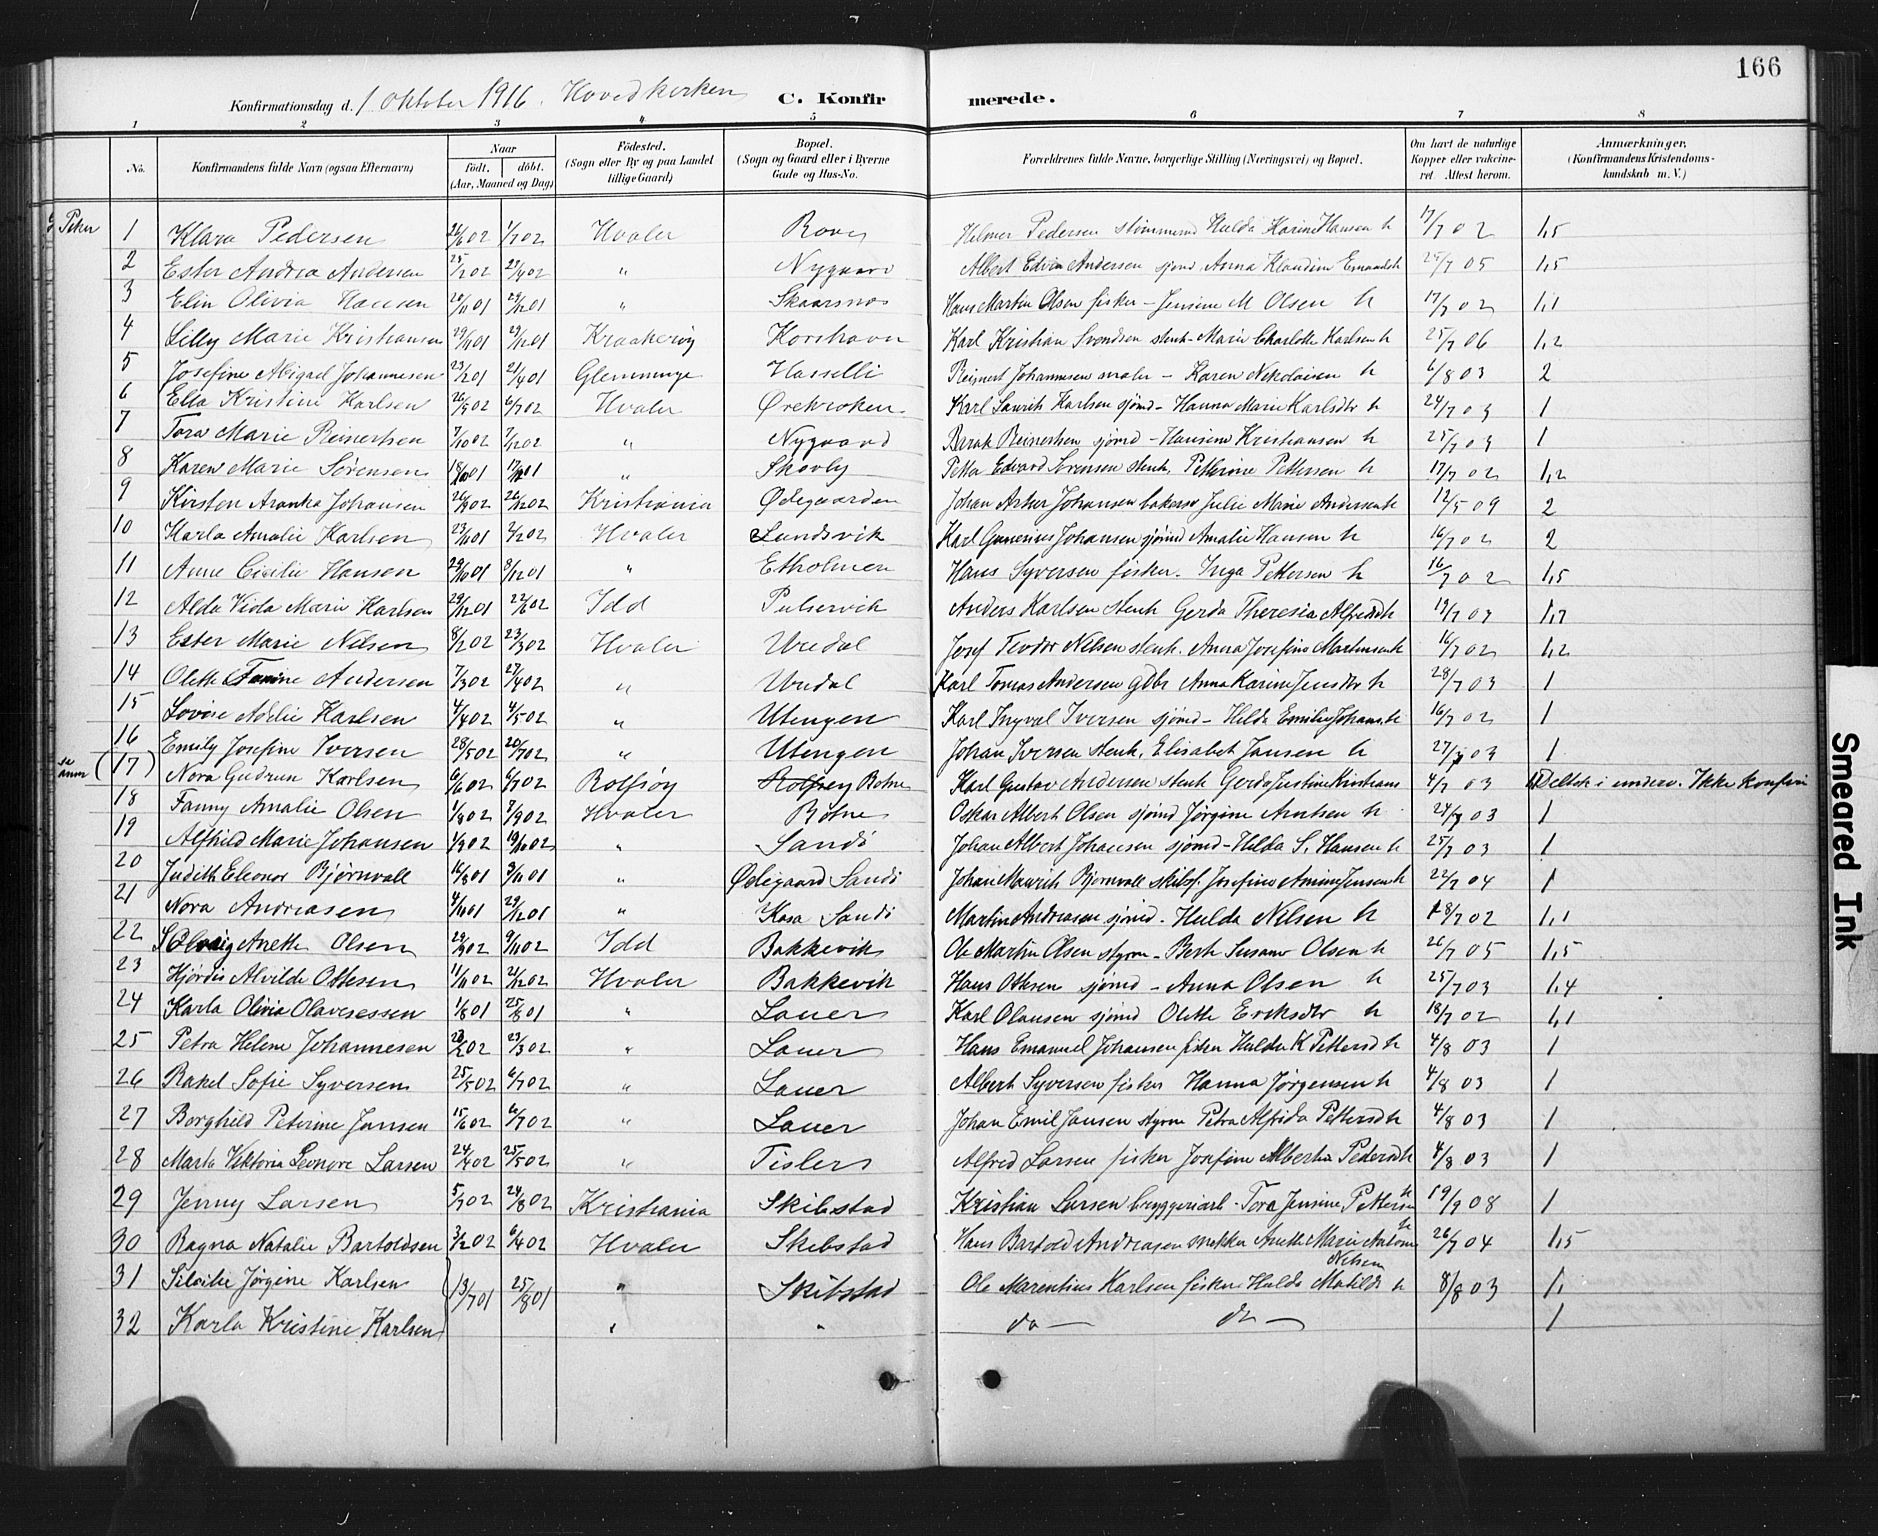 166
Konfirmationsdag d. 1 oktober 1916. Hovedkirken C. Konfirmerede.
1 2 3 4 5 6 7 8
No. Konfirmandens fulde Navn (ogsaa Efternavn) Naar født. døbt. (Aar, Maaned og Dag) Fødested. (Sogn eller By og paa Landet tillige Gaard) Bopæl. (Sogn og Gaard eller i Byerne Gade og Hus-No. Forældrenes fulde Navne, borgerlige Stilling (Næringsvei) og Bopæl. Om havt de naturlige Kopper eller vakcineret. Attest herom. Anmærkninger, (Konfirmandens Kristendomskundskab m. V.)
Piker 1 Klara Pedersen 26/6 02 1/7 02 Hvaler Rove Helmer Pedersen stenmind Hulda Karine Hansen h 17/7 02 1,5
2 Ester Andrea Andersen 25/2 02 27/4 02 " Nygaard Albert Edvin Andersen sjømd. Anna Klaudine 25/7 05 1,5
3 Elin Olivia Hansen 20/11 01 29/12 01 " Skaarsnes Hans Martin Olsen fisker - Jensine M Olsen h 17/7 02 1,1
4 Lilly Marie Kristiansen 29/11 01 29/12 01 Kraakerøy Korshavn Karl Kristian Svendsen stenh. Marie Charlotte Karlsen h 25/7 06 1,2
5 Josefine Abigael Johannesen 23/2 01 21/4 01 Glemminge Hasselli Reinert Johannesen maler - Karen Nikolaisen h 6/8 03 2
6 Ella Kristine Karlsen 26/5 02 6/7 02 Hvaler Ørekroken Karl Laurits Karlsen sjømd - Hanna Marie Karlsdtr h 24/7 03 1
7 Tora Marie Reinertsen 7/10 02 7/12 02 " Nygaard Barak Reinertsen sjømd - Hansine Kristiansen h 25/7 03 1
8 Karen Marie Sørensen 18/10 01 17/11 01 " Skovby Petter Edvard Sørensen stenh. Petterine Pettersen h 17/7 02 1,2
9 Kirsten Aranka Johansen 26/9 02 26/12 02 Kristiania Ødegaarden Johan Artur Johansen bakersv Julie Marie Andersen h 12/5 09 2
10 Karla Amalie Karlsen 23/11 01 2/2 02 Hvaler Lundsvik Karl Gunerius Johansen sjømd Amalie Hansen h 16/7 02 2
11 Anne Cicilie Hansen 29/10 01 8/12 01 " Etholmen Hans Syversen fisker. Inga Pettersen h 16/7 02 1,5
12 Alda Viola Marie Karlsen 29/12 01 22/6 02 Idd Pulservik Anders Karlsen stenh Gerda Theresia Alfredsdtr 19/7 03 1,7
13 Ester Marie Nilsen 8/2 02 23/3 02 Hvaler Uredal Josef Teodor Nilsen stenh. Anna Josefine Martinsen h 16/7 02 1,2
14 Olette Fanine Andersen 7/3 02 27/4 02 " Uredal Karl Tomas Andersen Gdbr Anna Karine Jensdtr h 28/7 03 1
15 Lovise Adelie Karlsen 4/4 02 4/5 02 " Utengen Karl Ingval Iversen sjømd - Hilda Emilie Johans. h 16/7 02 1
16 Emily Josefine Iversen 28/5 02 20/7 02 " Utengen Johan Iversen stenh. Elisabet Jansen h 27/7 03 1
se anm (17) Nora Gudrun Karlsen 6/6 02 6/7 02 Rolfsøy Rolfsøy Botne Karl Gustav Andersen stenh Gerda Justine Kristians 4/7 03 Deltok i underv. Ikke konfirm
18 Fanny Amalie Olsen 1/8 02 7/9 02 Hvaler Botne Oskar Albert Olsen sjømd Jørgine Arntsen h 24/7 03 1
19 Alfhild Marie Johansen 1/9 02 19/10 02 " Sandö Johan Albert Johansen sjømd - Hilda S. Hansen h 25/7 03 1
20 Judith Eleonor Bjørnvall 16/8 01 3/11 01 " Ødegaard Sandö Johan Mauritz Bjørnvall skibsf. Josefine Amine Jensen h 22/7 04 1
21 Nora Andreasen 4/11 01 29/12 01 " Kasa Sandö Martin Andreasen sjømd. Hulda Nilsen h 18/7 02 1,1
22 Solveig Anette Olsen 29/9 02 9/11 02 Idd Bakkevik Ole Martin Olsen styrm - Berte Susanne Olsen h 26/7 05 1,5
23 Hjørdis Alvilde Ottesen 11/11 02 21/12 02 Hvaler Bakkevik Hans Ottesen sjømd - Anna Olsen h 25/7 03 1,4
24 Karla Olivia Olavesessen 1/8 01 25/8 01 " Lauer Karl Olausen sjømd Olette Eriksdtr h 18/7 02 1,1
25 Petra Helene Johannesen 20/2 02 23/3 02 " Lauer Hans Emanuel Johansen fisker Hulda K Pettersd h 4/8 03 1
26 Rakel Sofie Syversen 25/5 02 6/7 02 " Lauer Albert Syversen fisker Hanna Jørgensen h 4/8 03 1
27 Borghild Peterine Jansen 15/6 02 6/7 02 " Lauer Johan Emil Jansen styrm Petra Alfrida Pettersd h 4/8 03 1
28 Marta Viktoria Leonore Larsen 24/4 02 25/5 02 " Tisler Alfred Larsen fisker Josefine Albertine Pedersd h 4/8 03 1
29 Jenny Larsen 5/7 02 24/8 02 Kristiania Skibstad Kristian Larsen bryggeriarb - Tora Jensine Pettersen h 19/9 08 1
30 Ragna Natalie Bartoldsen 3/2 02 6/4 02 Hvaler Skibstad Hans Bartold Andreasen snekker Anette Marie h 26/7 04 1,5
31 Silcilie Jørgine Karlsen 13/7 01 25/8 01 " Skibstad Ole Marentius Karlsen fisker. Hulda Matilde Nilsen h 8/8 03 1,
32 Karla Kristine Karlsen " " do — do — 1
Smeared Ink